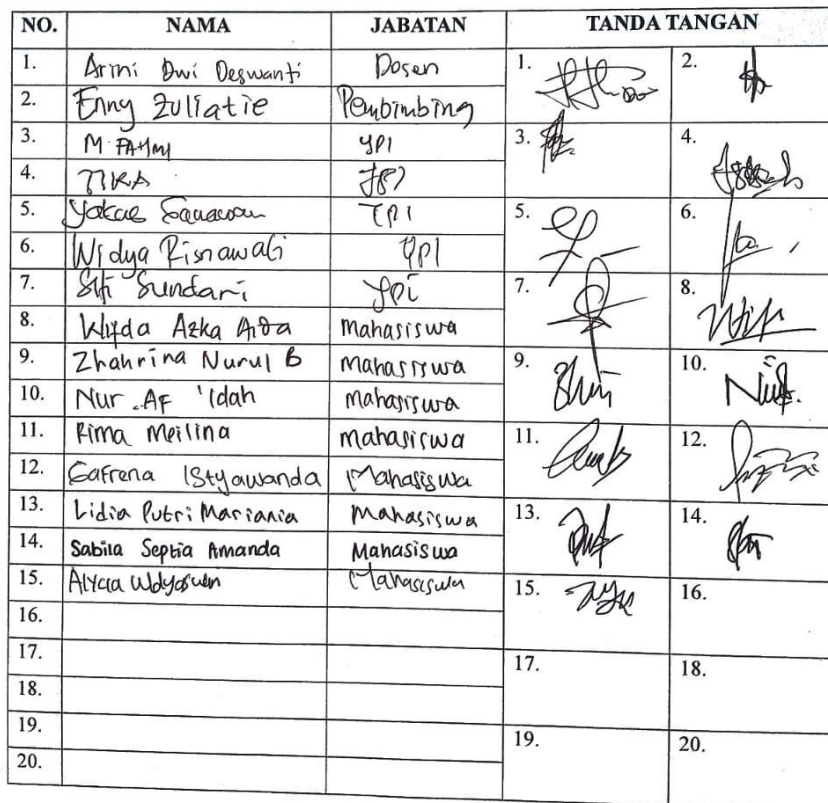 NO. NAMA JABATAN TANDA TANGAN
1. Arini Dwi Deswanti Dosen 1. 2.
2. Enny Zuliatie Pembimbing
3. M. FAHMI YPI 3. 4.
4. TIKA
5. YPI 5. 6.
6. Widya Risnawati YPI
7. Siti Sundari YPI 7. 8.
8. Azka mahasiswa
9. Zhahrina Nurul B mahasiswa 9. 10.
10. Nur .Af 'Idah mahasiswa
11. Rima Meilina mahasiswa 11. 12.
12. Safrena IStyawanda Mahasiswa
13. Lidia Putri Mariania Mahasiswa 13. 14.
14. Sabila Septia Amanda Mahasiswa
15. Mahasiswa 15. 16.
16.
17. 17. 18.
18.
19. 19. 20.
20.